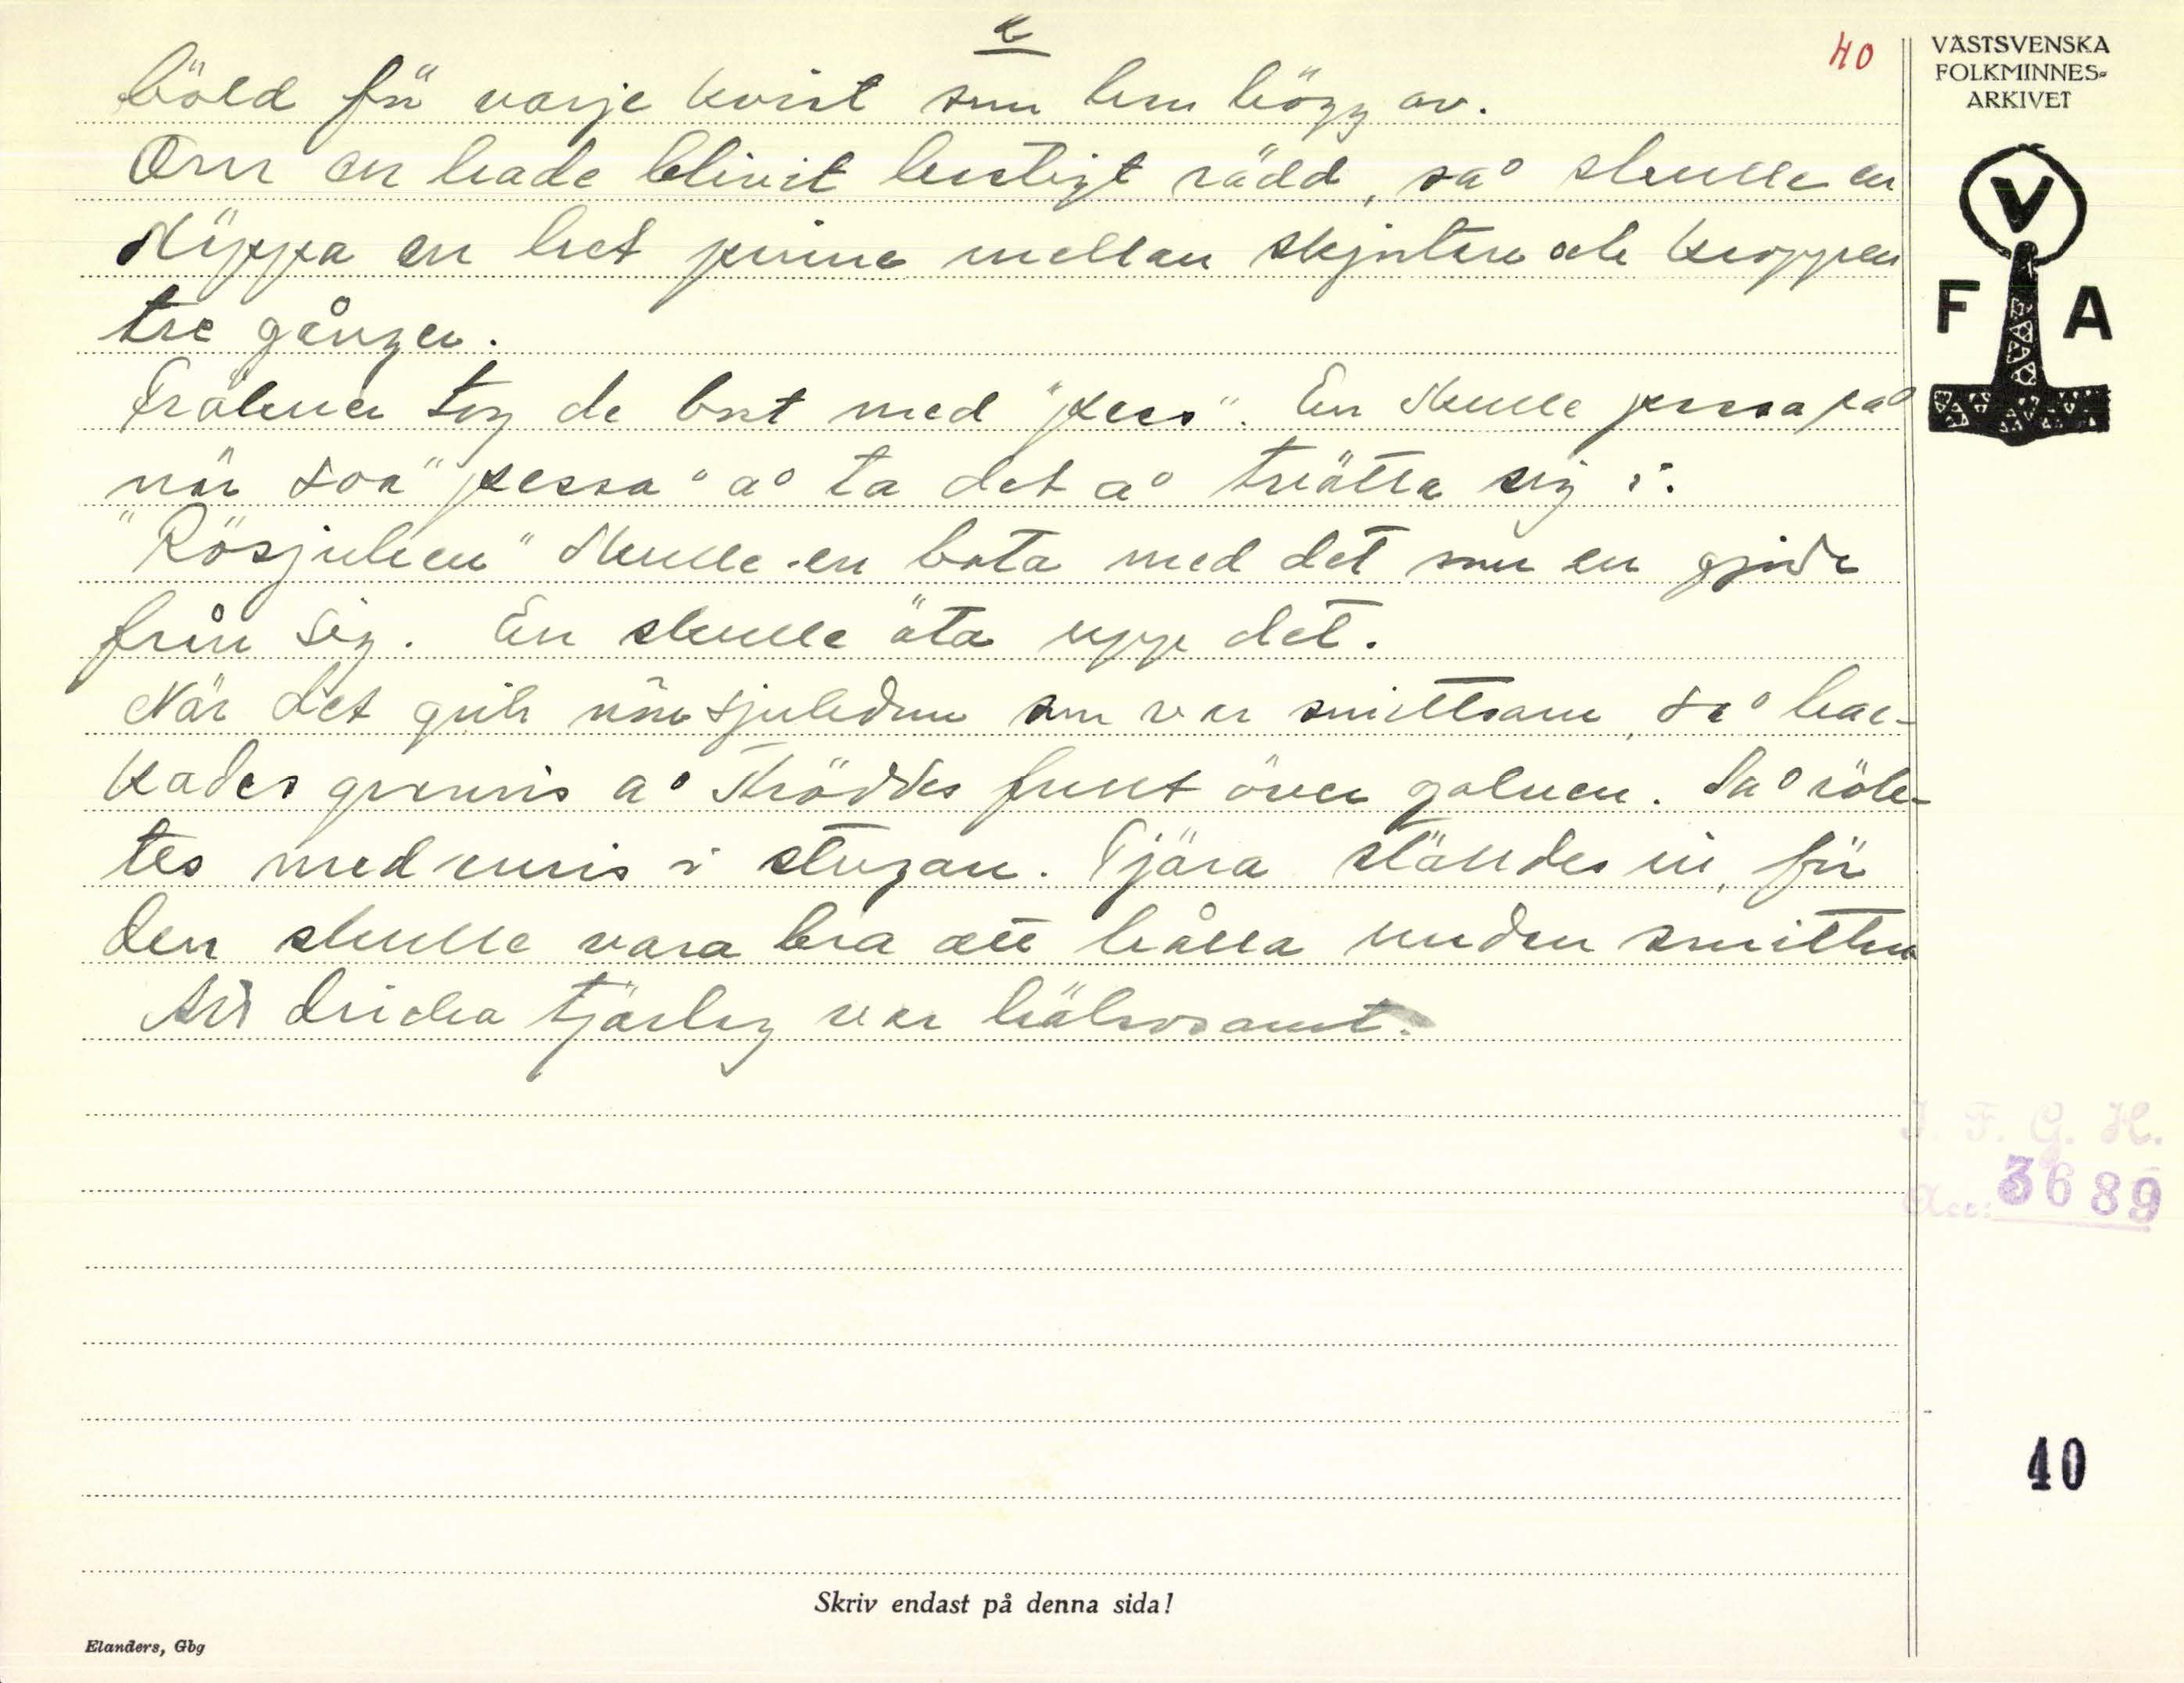 40
VÄSTSVENSKA
FOLKMINNES-
ARKIVET
V
F A
böld för varje kvist som hon högg av.
Om en hade blivit hastigt rädd, så skulle en
släppa en het pinne mellan skjortan och kroppen
tre gånger.
Frälman tog de bort med "pess". En skulle passa på
när soa "pessa" å ta det å tvätta sig i.
"Rösjuken" skulle en bota med det som en gjorde
från sig. En skulle äta upp det.
När det gick nån sjukdom som var smittsam, så hac-
kades granris å ströddes frutt över golven. Så rök-
tes med enris i stugan. Tjära ställdes in, för
den skulle vara bra att hålla undan smittan
Att dricka tjärlag var hälsosamt.
I. F. G. H.
Acc: 3689
40
Skriv endast på denna sida!
Elanders, Gbg